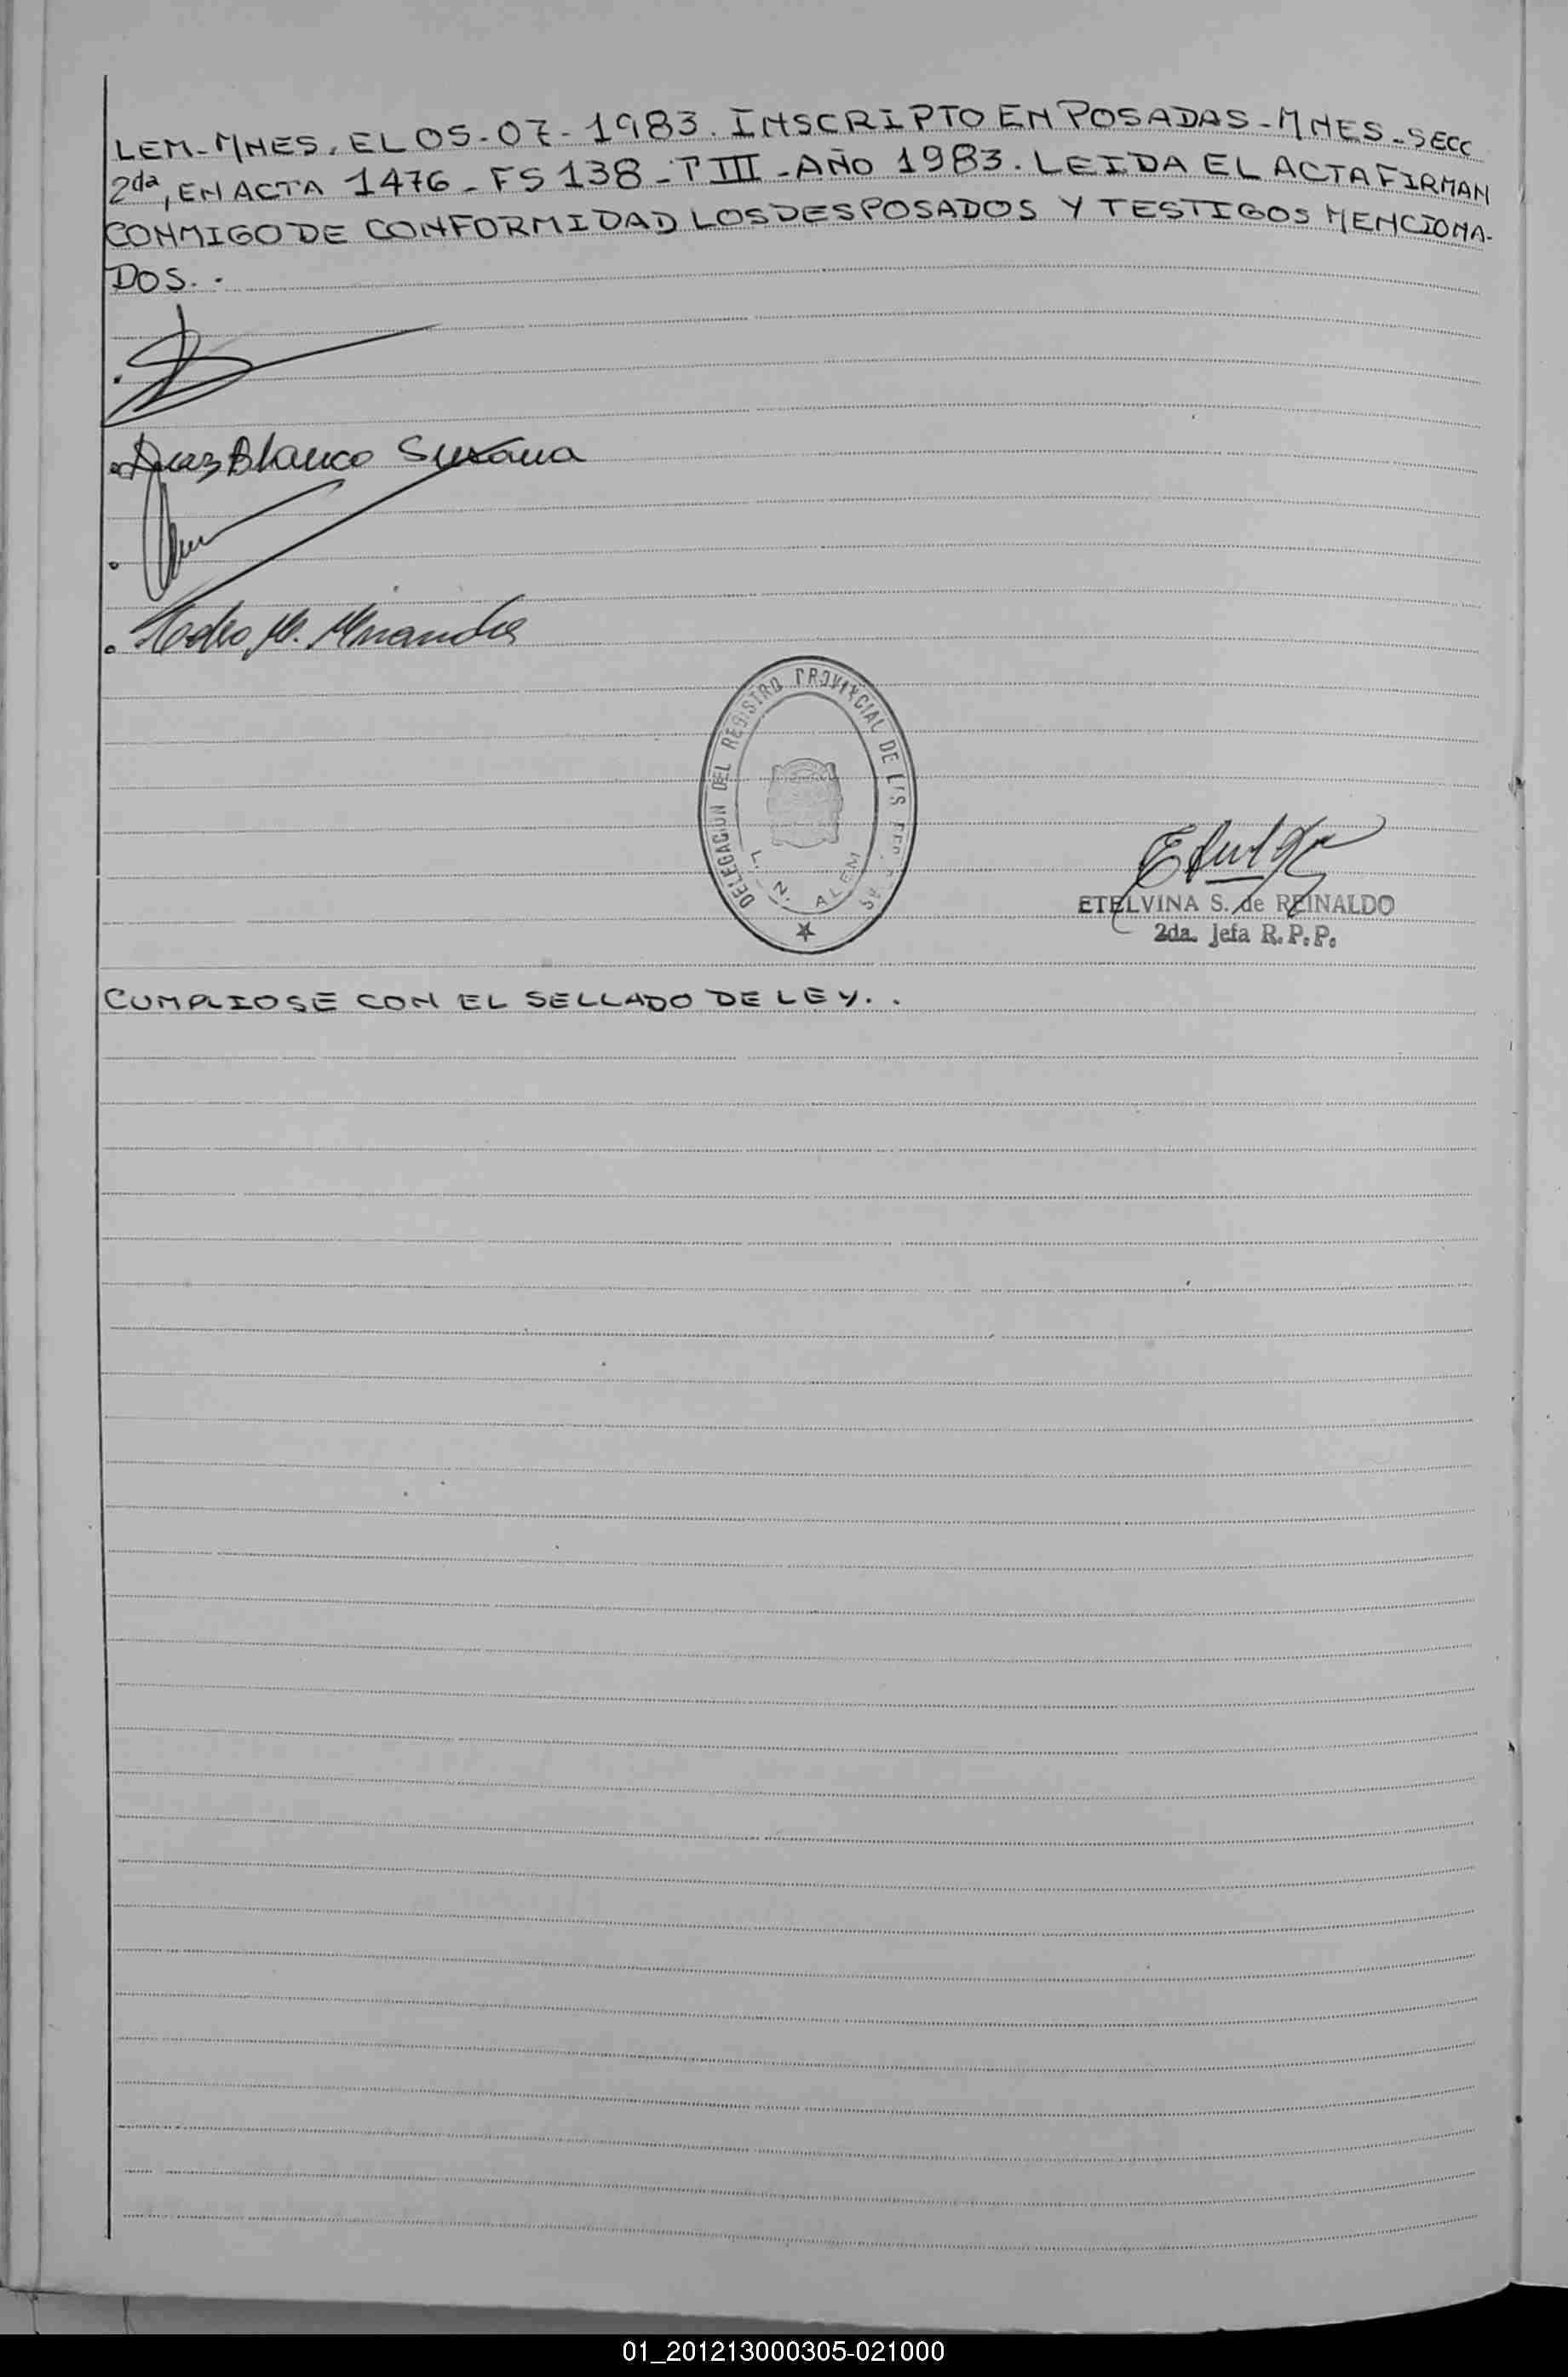 LEM-MNES. EL 05-07-1983. INSCRIPTO EN POSADAS-MNES-SECC
2da, EN ACTA 1476-FS 138-T III-AÑO 1983. LEIDA EL ACTA FIRMAN
CONMIGO DE CONFORMIDAD LOS DESPOSADOS Y TESTIGOS MENCIONA-
DOS..
Diaz Blanco Susana
DELEGACION DEL REGISTRO PROVINCIAL DE
L. N. ALEM
ETELVINA S. de REINALDO
2da. Jefa R.P.P.
CUMPLIOSE CON EL SELLADO DE LEY..
01_201213000305-021000